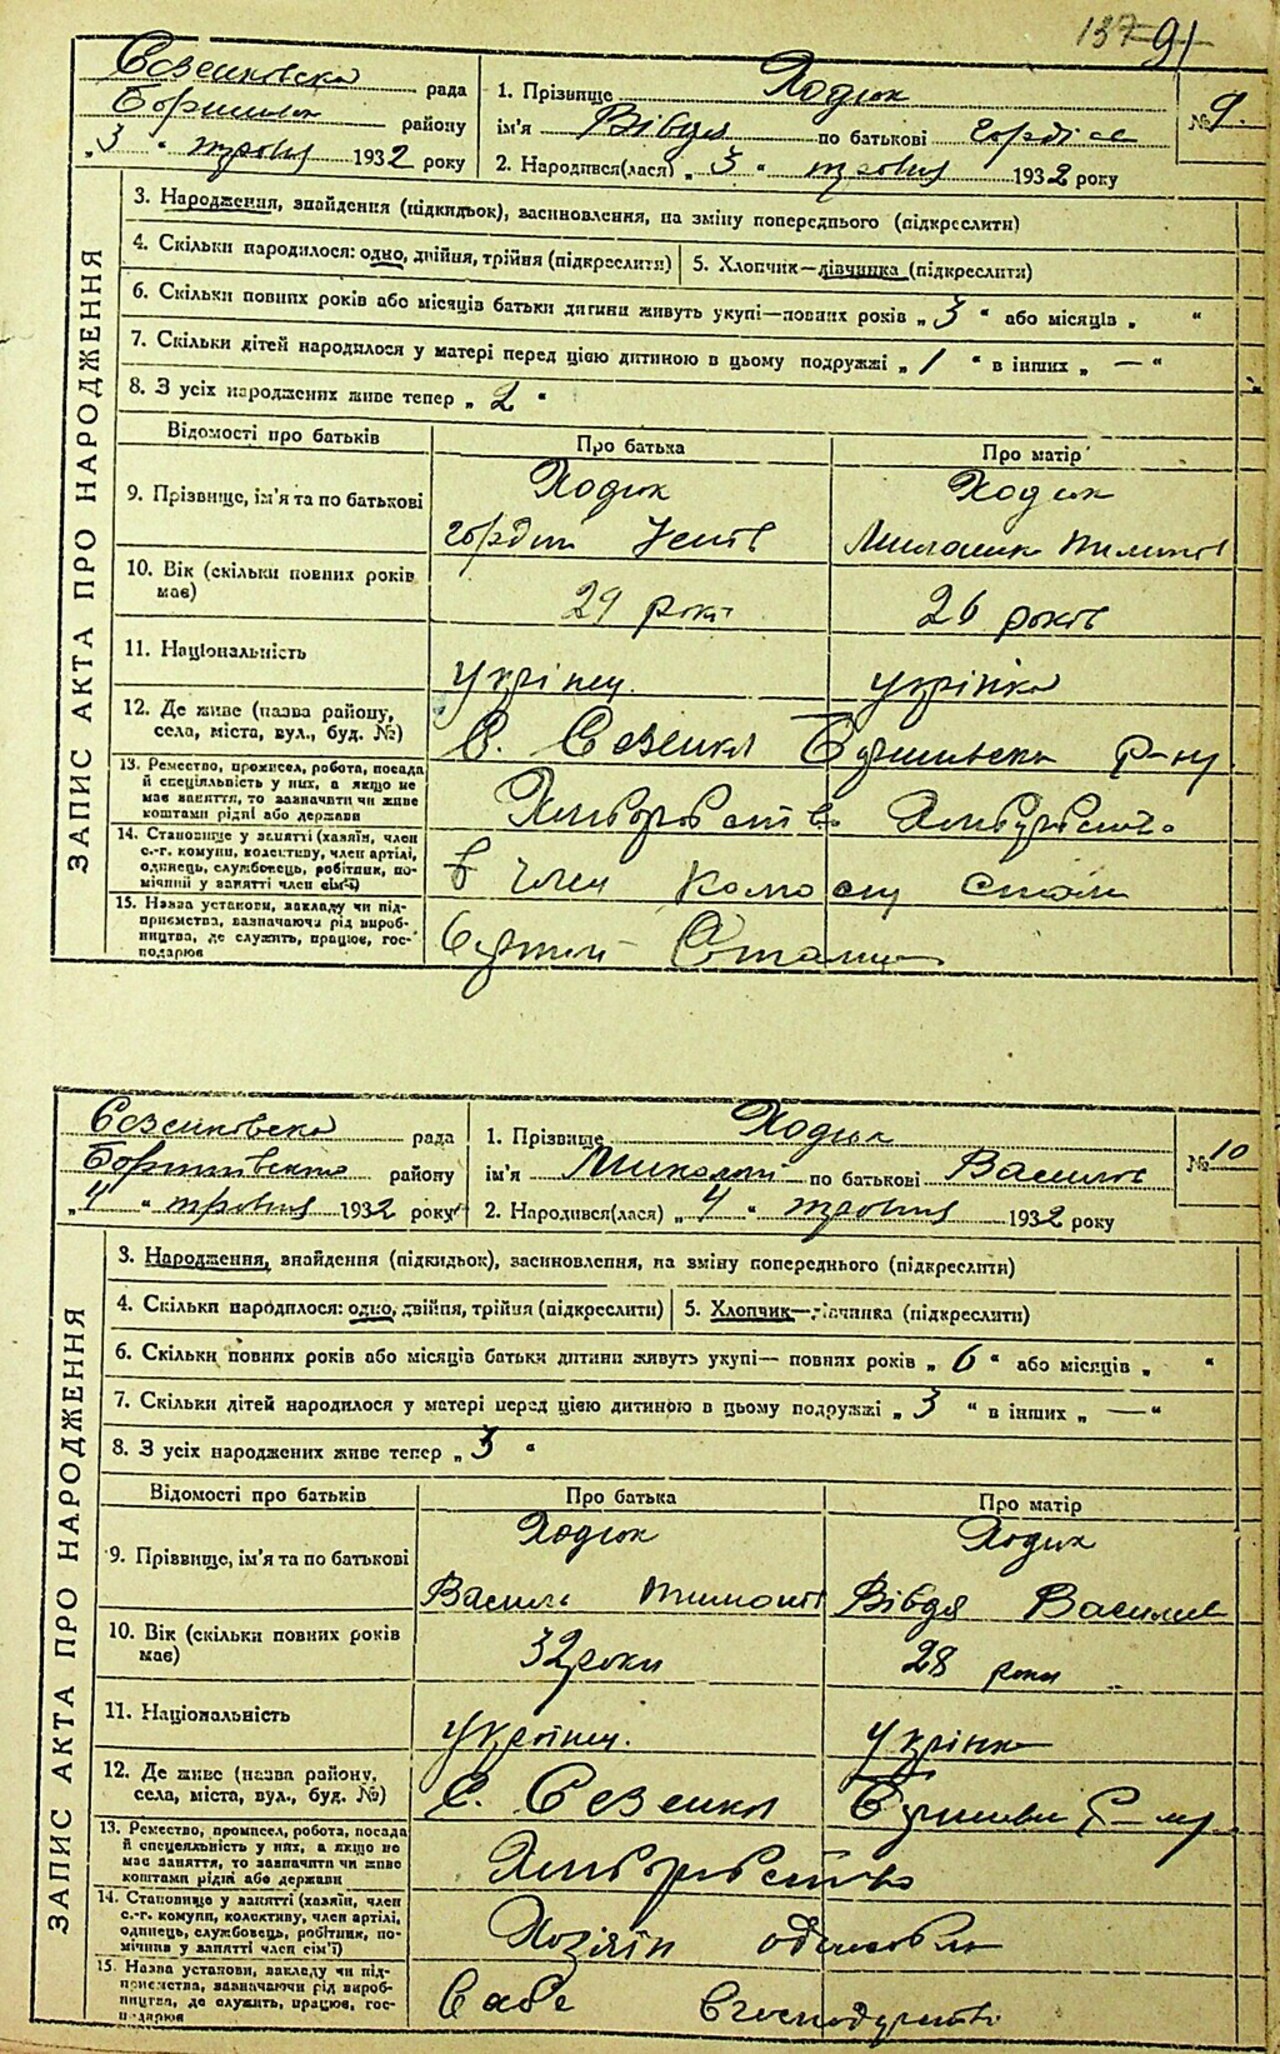 137 91
Безенковска рада
району
„3 “ травня 1932 року
1. Прізвище Ходюк
ім'я Вівдя по батькові Гордієв
2. Народився(лася) „ 3 “ травня 1932 року
№ 9.
ЗАПИС АКТА ПРО НАРОДЖЕННЯ
3. Народження, знайдення (підкидьок), засиновлення, на зміну попереднього (підкреслити)
4. Скільки народилося: одно, двійня, трійня (підкреслити)
5. Хлопчик—дівчинка (підкреслити)
6. Скільки повних років або місяців батьки дитини живуть укупі—повних років „ 3 “ або місяців „ “
7. Скільки дітей народилося у матері перед цією дитиною в цьому подружжі „ 1 “ в інших „ — “
8. З усіх народжених живе тепер „ 2 “
Відомості про батьків
Про батька
Про матір
9. Прізвище, ім'я та по батькові
Ходюк
Ходюк
Гордій
10. Вік (скільки повних років має)
29 років
26 років
11. Національність
укрінец.
укрінка
12. Де живе (назва району, села, міста, вул., буд. №)
С. Р-ну
13. Ремество, промисел, робота, посада
й спеціяльність у них, а якщо не
має заняття, то зазначити чи живе
коштами рідні або держави
Хліборобство Хліборобство
14. Становище у занятті (хазяїн, член
с.-г. комуни, колективу, член артілі,
одинець, службовець, робітник, по-
мічний у занятті член сім'ї)
член
15. Назва установи, закладу чи під-
приємства, зазначаючи рід вироб-
ництва, де служить, працює, гос-
подарює
Безенковска рада
Боршнівського району
„4 “ травня 1932 року
1. Прізвище Ходюк
ім'я Миколай по батькові Василів
2. Народився(лася) „ 4 “ травня 1932 року
№ 10
ЗАПИС АКТА ПРО НАРОДЖЕННЯ
3. Народження, знайдення (підкидьок), засиновлення, на зміну попереднього (підкреслити)
4. Скільки народилося: одно, двійня, трійня (підкреслити)
5. Хлопчик—дівчинка (підкреслити)
6. Скільки повних років або місяців батьки дитини живуть укупі— повних років „ 6 “ або місяців „ “
7. Скільки дітей народилося у матері перед цією дитиною в цьому подружжі „ 3 “ в інших „ — “
8. З усіх народжених живе тепер „ 3 “
Відомості про батьків
Про батька
Про матір
9. Прізвище, ім'я та по батькові
Ходюк
Ходюк
Василь Тимофі Вівдя Василів
10. Вік (скільки повних років має)
32 роки
28 роки
11. Національність
українец.
Укрінка
12. Де живе (назва району, села, міста, вул., буд. №)
С. Р-ну
13. Ремество, промисел, робота, посада
й спеціяльність у них, а якщо не
має заняття, то зазначити чи живе
коштами рідні або держави
Хліборобство
14. Становище у занятті (хазяїн, член
с.-г. комуни, колективу, член артілі,
одинець, службовець, робітник, по-
мічний у занятті член сім'ї)
Хозяїн
15. Назва установи, закладу чи під-
приємства, зазначаючи рід вироб-
ництва, де служить, працює, гос-
подарює